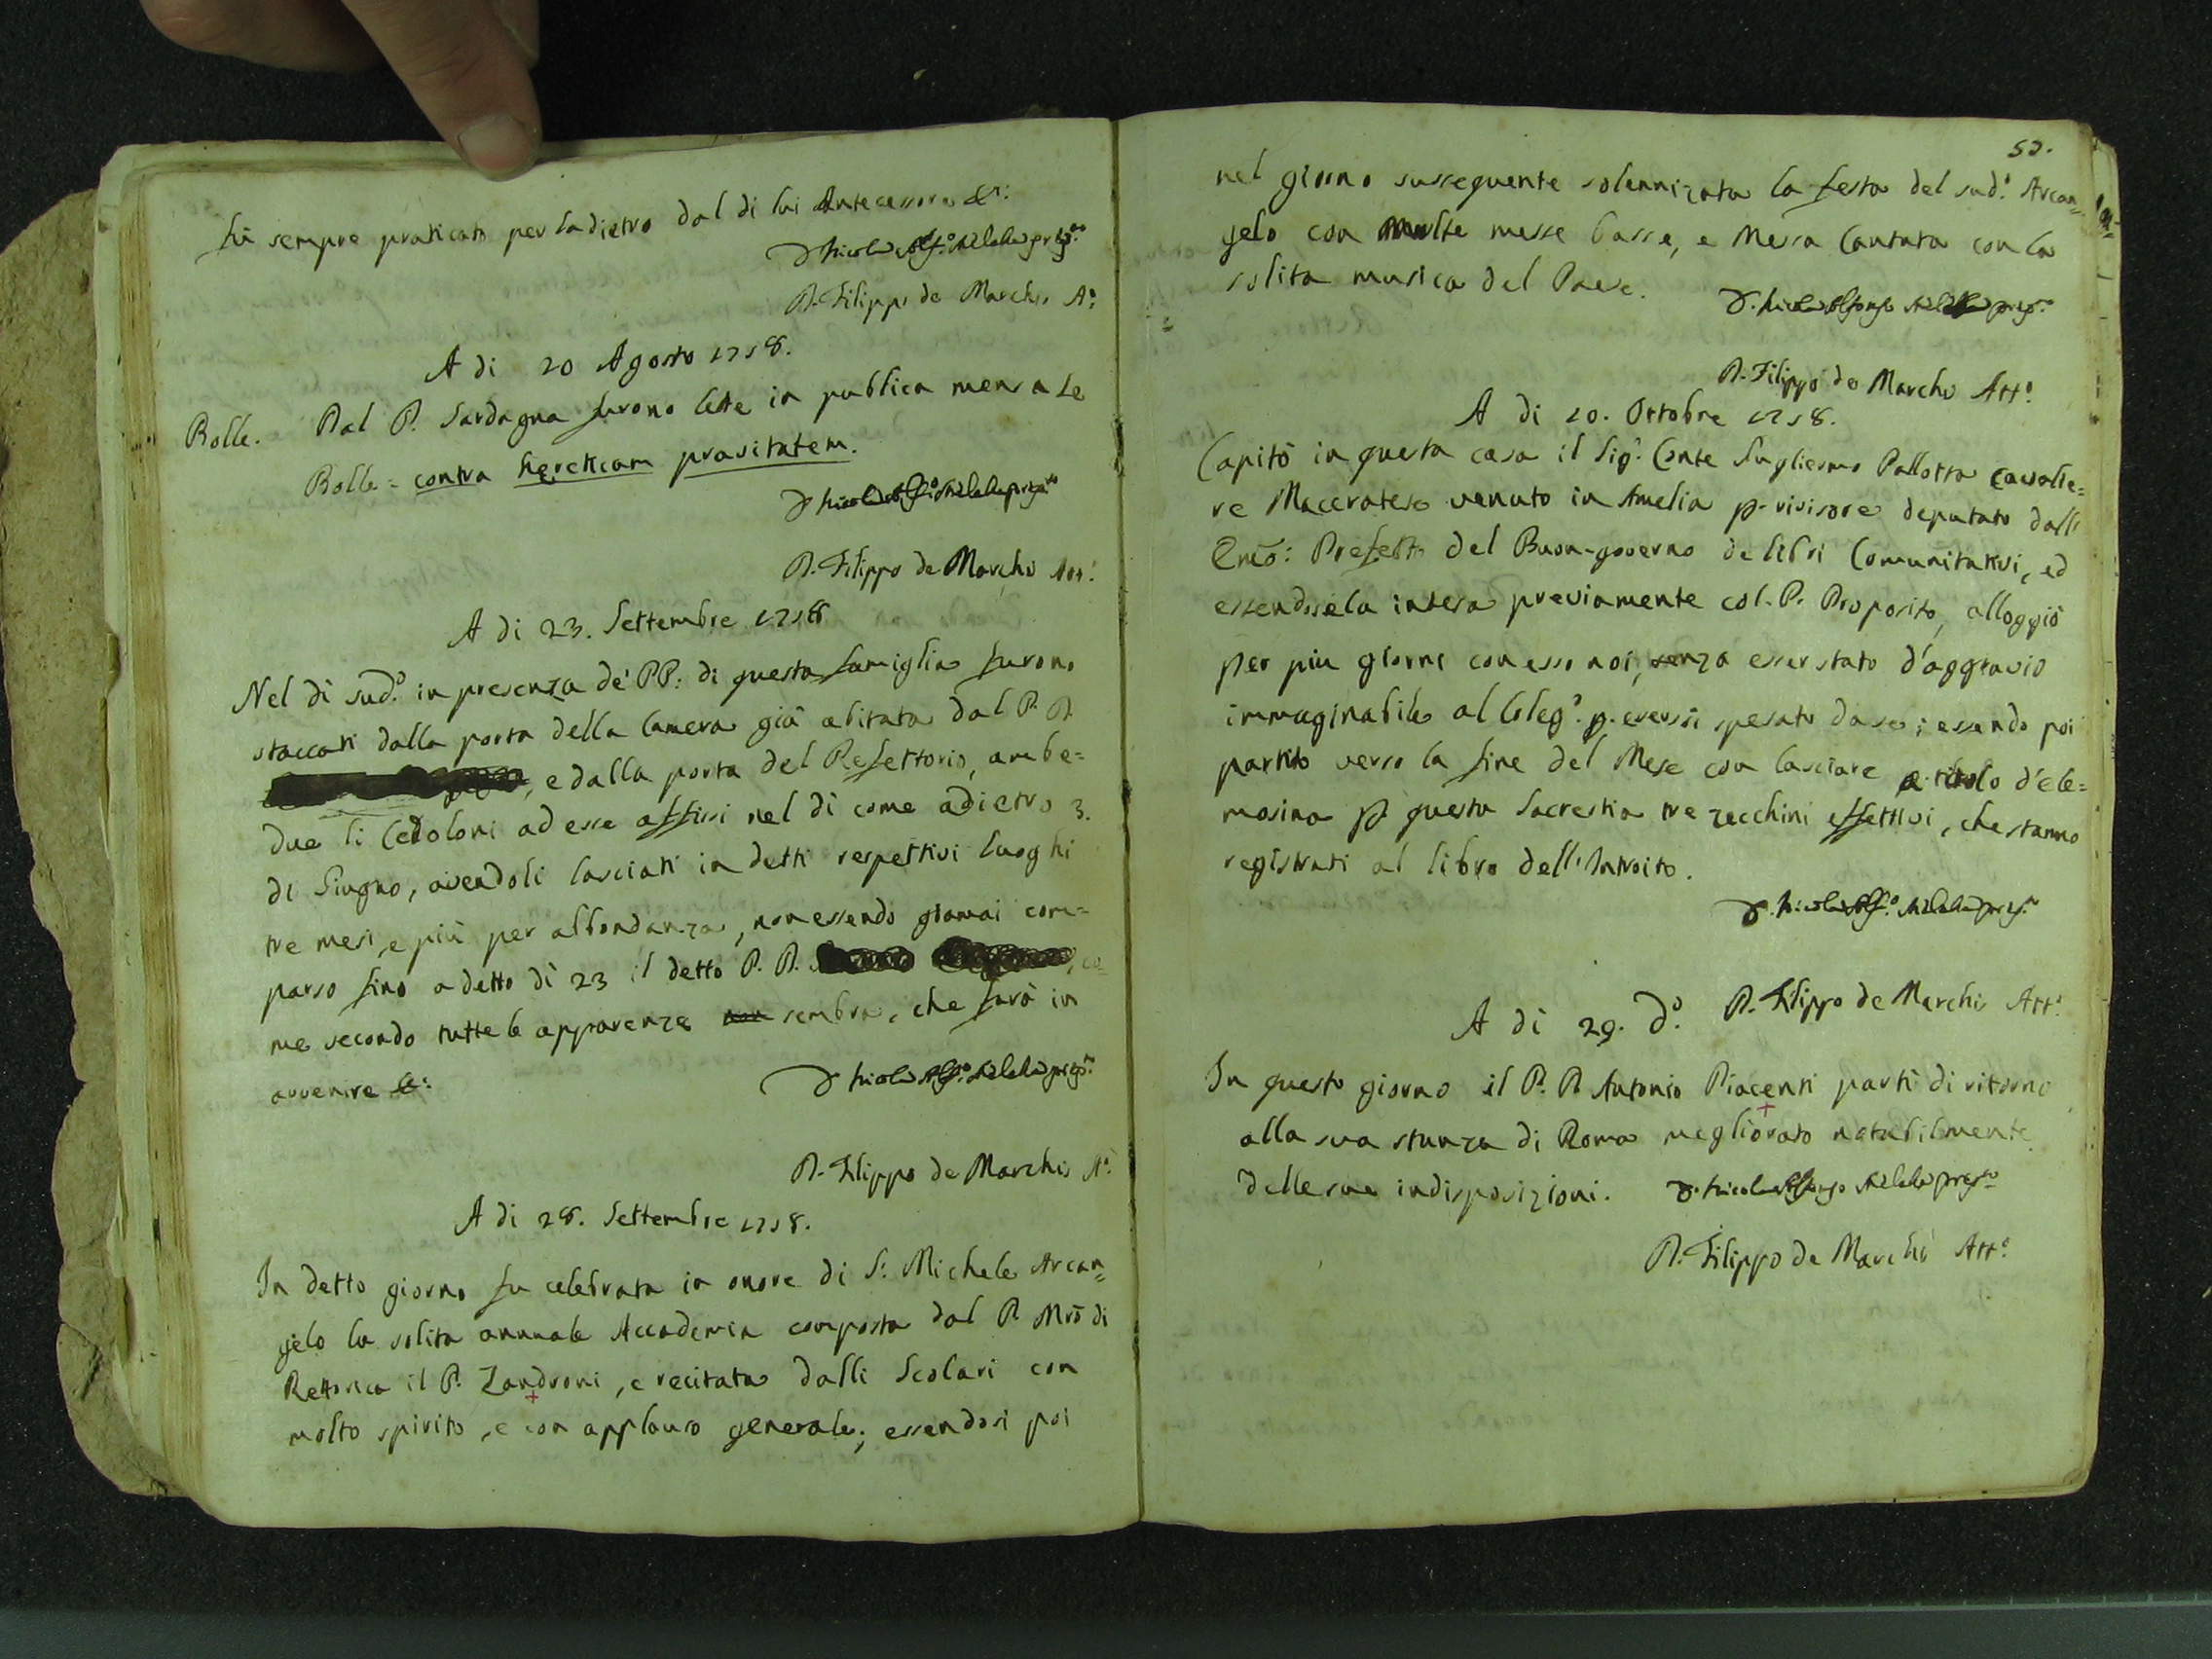 fù sempre praticato per l'adietro dal di lui Antecessore &c:
D. Nicola Alf.o Melella prep.to
D. Filippo de Marchis A.o
A di 20 Agosto 1758.
Bolle. Dal P. Sardagna furono lette in publica mensa le
Bolle = contra hereticam pravitatem.
D. Nicola Alf.o Melella prep.to
D. Filippo de Marchis Att.o
A di 23. Settembre 1758
Nel dì sud.o in presenza de' PP: di questa famiglia furono
staccati dalla porta della Camera già abitata dal P. D.
, e dalla porta del Refettorio, ambe=
due li Cedoloni ad esse affissi nel dì come adietro 3.
di Giugno, avendoli lasciati in detti respettivi luoghi
tre mesi, e più per abbondanza, non essendo giamai com=
parso fino a detto dì 23 il detto P. D. , co=
me secondo tutte le apparenze non sembra, che farà in
avvenire &c:
D. Nicola Alf.o Melella prep.to
D. Filippo de Marchis A.o
A di 28. Settembre 1758.
In detto giorno fu celebrata in onore di S. Michele Arcan=
gelo la solita annuale Accademia composta dal P. Mrō di
Rettorica il P. Zandroni, e recitata dalli Scolari con
molto spirito, e con applauso generale; essendosi poi
52.
nel giorno susseguente solennizata la festa del sud.o Arcan=
gelo con molte messe basse, e Messa Cantata con la
solita musica del Paese.
D. Nicola Alfonso Melella prep.to
D. Filippo de Marchis Att.o
A di 20. Ottobre 1758.
Capitò in questa casa il Sig.r Conte Guglielmo Pallotta Cavalie=
re Maceratese venuto in Amelia p. revisore deputato dall'
Em̄o: Prefetto del Buon-governo de libri Comunitativi, ed
essendosela intesa previamente col P. Proposito, alloggiò
per più giorni con esso noi, senza esser stato d'aggravio
immaginabile al Coleg.o p. essersi spesato da se; essendo poi
partito verso la fine del Mese con lasciare a titolo d'ele=
mosina p. questa Sacrestia tre zecchini effettivi, che stanno
registrati al libro dell'Introito.
D. Nicola Alf.o Melella prep.to
D. Filippo de Marchis Att.o
A di 29. d.o
In questo giorno il P. D. Antonio Piacenti partì di ritorno
alla sua stanza di Roma megliorato notabilmente
delle sue indisposizioni.
D. Nicola Alfonso Melella prep.to
D. Filippo de Marchis Att.o